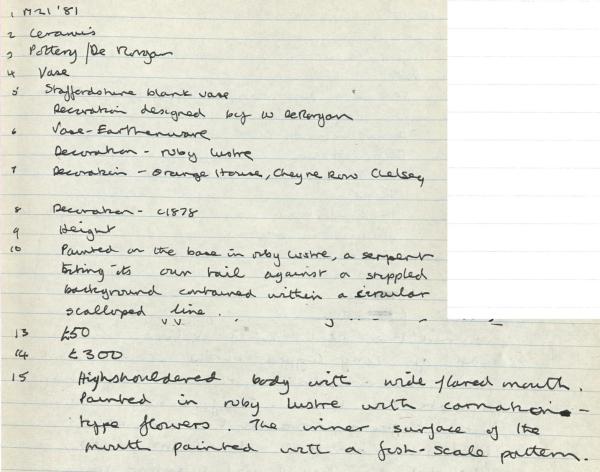 1 M21 '81
2 Ceramics
3 Pottery / De Morgan
4 Vase
5 Staffordshire blank vase
Decoration designed by W DeMorgan
6 Vase - Earthenware
Decoration - ruby lustre
7 Decoration - Orange House, Cheyne Row Chelsey
8 Decoration - c1878
9 Height
10 Painted on the base in ruby lustre, a serpent
biting its own tail against a stippled
background contained within a circular
scalloped line.
13 £50
14 £300
15 Highshouldered body with wide flared mouth.
Painted in ruby lustre with carnation -
type flowers. The inner surface of the
mouth painted with a fish-scale pattern.